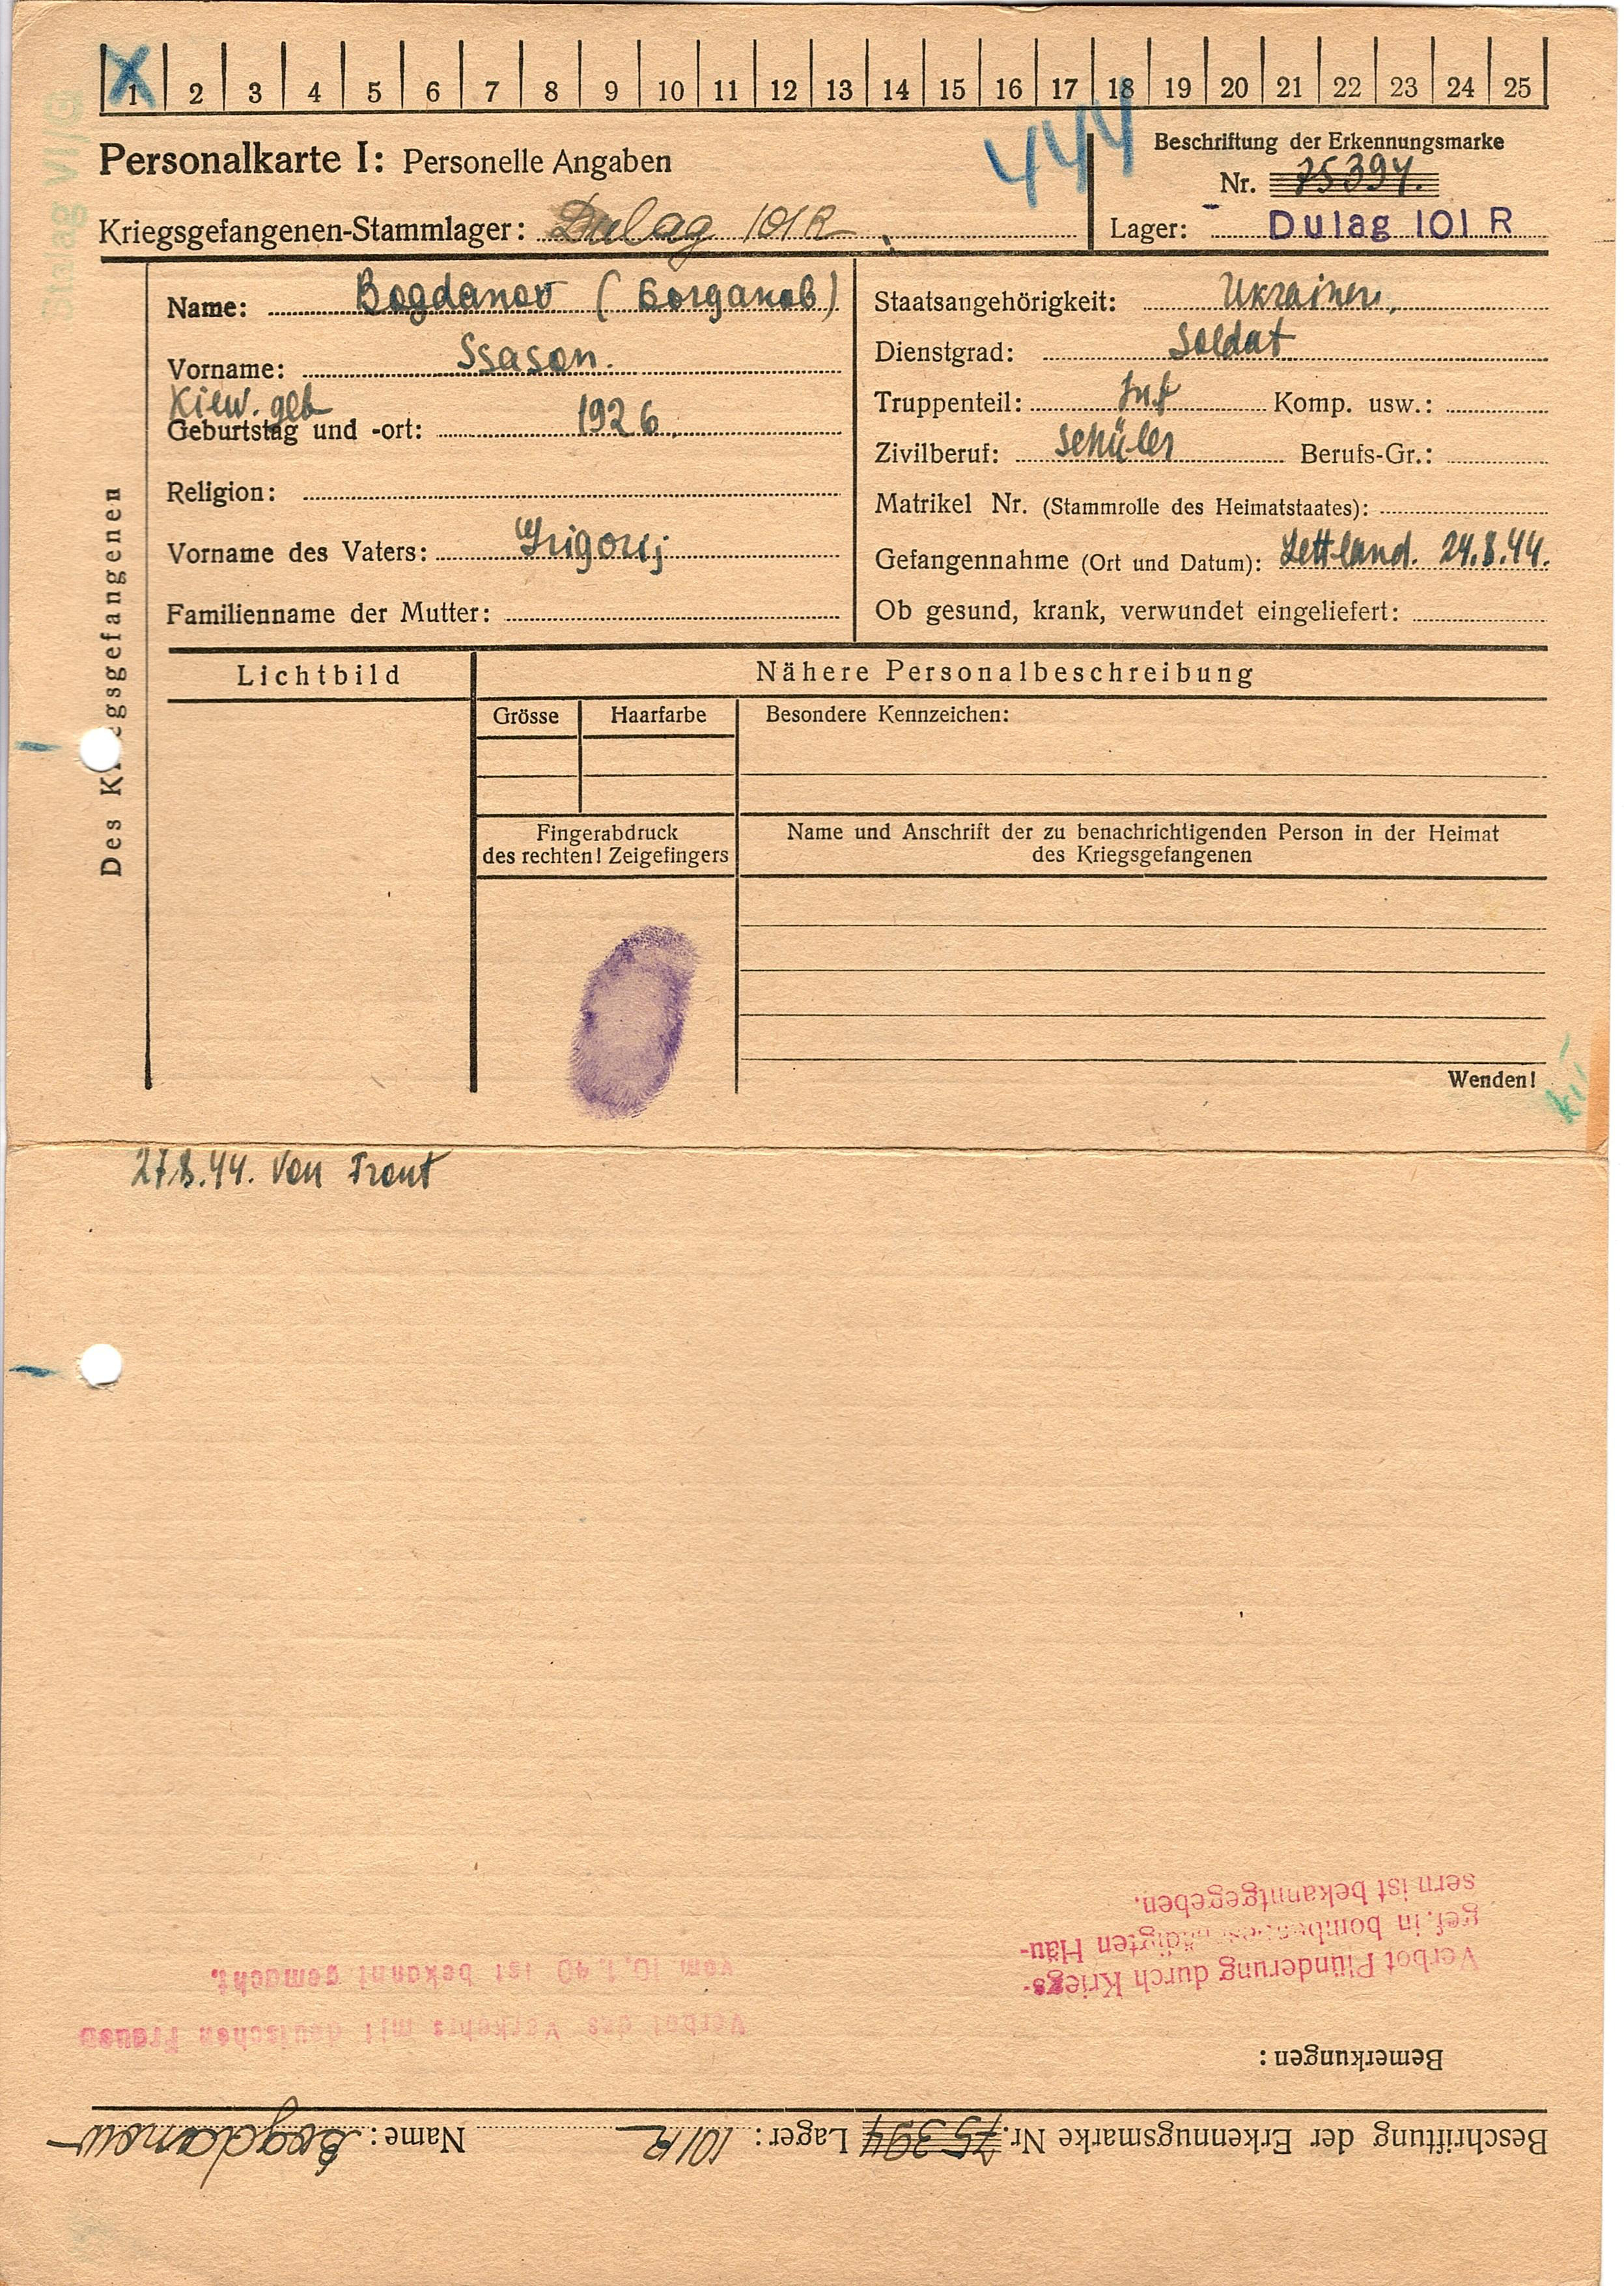 X
1 2 3 4 5 6 7 8 9 10 11 12 13 14 15 16 17 18 19 20 21 22 23 24 25
Stalag VI/G
Personalkarte I: Personelle Angaben
444
Beschriftung der Erkennungsmarke
Nr. 75394.
Kriegsgefangenen-Stammlager: Dulag 101 R
Lager: Dulag 101 R
Des Kriegsgefangenen
Name: Bogdanov (Богданов)
Vorname: Ssason.
Kiew. geb
Geburtstag und -ort: 1926.
Religion:
Vorname des Vaters: Grigorij
Familienname der Mutter:
Staatsangehörigkeit: Ukrainer,
Dienstgrad: Soldat
Truppenteil: Inf Komp. usw.:
Zivilberuf: Schüler Berufs-Gr.:
Matrikel Nr. (Stammrolle des Heimatstaates):
Gefangennahme (Ort und Datum): Lettland. 24.8.44.
Ob gesund, krank, verwundet eingeliefert:
Lichtbild
Nähere Personalbeschreibung
Grösse
Haarfarbe
Besondere Kennzeichen:
Fingerabdruck
des rechten! Zeigefingers
Name und Anschrift der zu benachrichtigenden Person in der Heimat
des Kriegsgefangenen
Wenden!
27.8.44. Von Front
Beschriftung der Erkennugsmarke Nr. 75394 Lager: 101 R Name: Bogdanow
Bemerkungen:
Verbot Plünderung durch Kriegs-
gef. in bombengeschädigten Häu-
sern ist bekanntgegeben.
Verbot des Verkehrs mit deutschen Frauen
vom 10.1.40 ist bekannt gemacht.